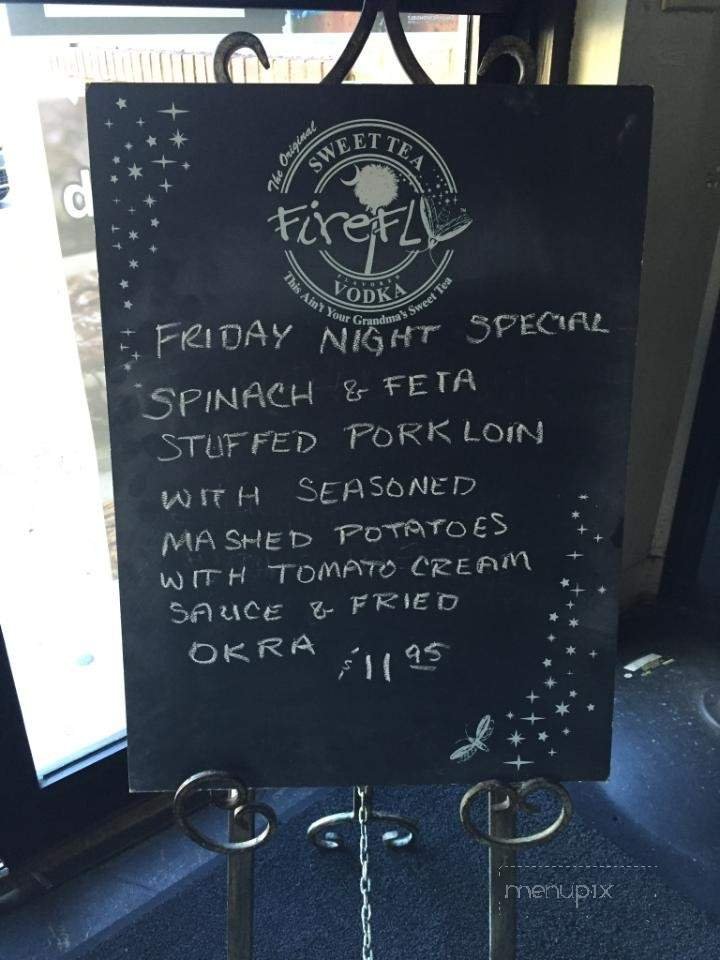 The Original
SWEET TEA
FiREFLY
FLAVORED
VODKA
This Ain't Your Grandma's Sweet Tea
FRIDAY NIGHT SPECIAL
SPINACH & FETA
STUFFED PORK LOIN
WITH SEASONED
MASHED POTATOES
WITH TOMATO CREAM
SAUCE & FRIED
OKRA $11 95
d
menupix